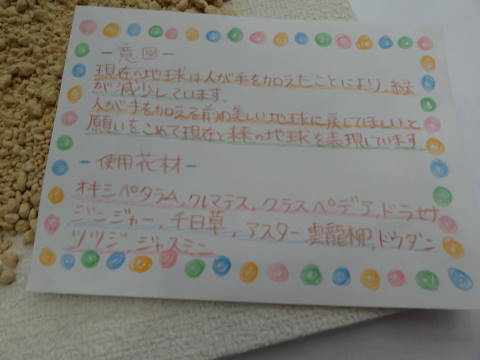 -意図-
現在の地球は人が手を加えたことにより、緑
が減少しています。
人が手を加える前の美しい地球に戻してほしいと
願いをこめて現在と未来の地球を表現しています
-使用花材-
オキシペタラム,クレマチス,クラスペデア,ドラセナ
ジンジャー,千日草,アスター,雲龍柳,ドウダン
ツツジ,ジャスミン